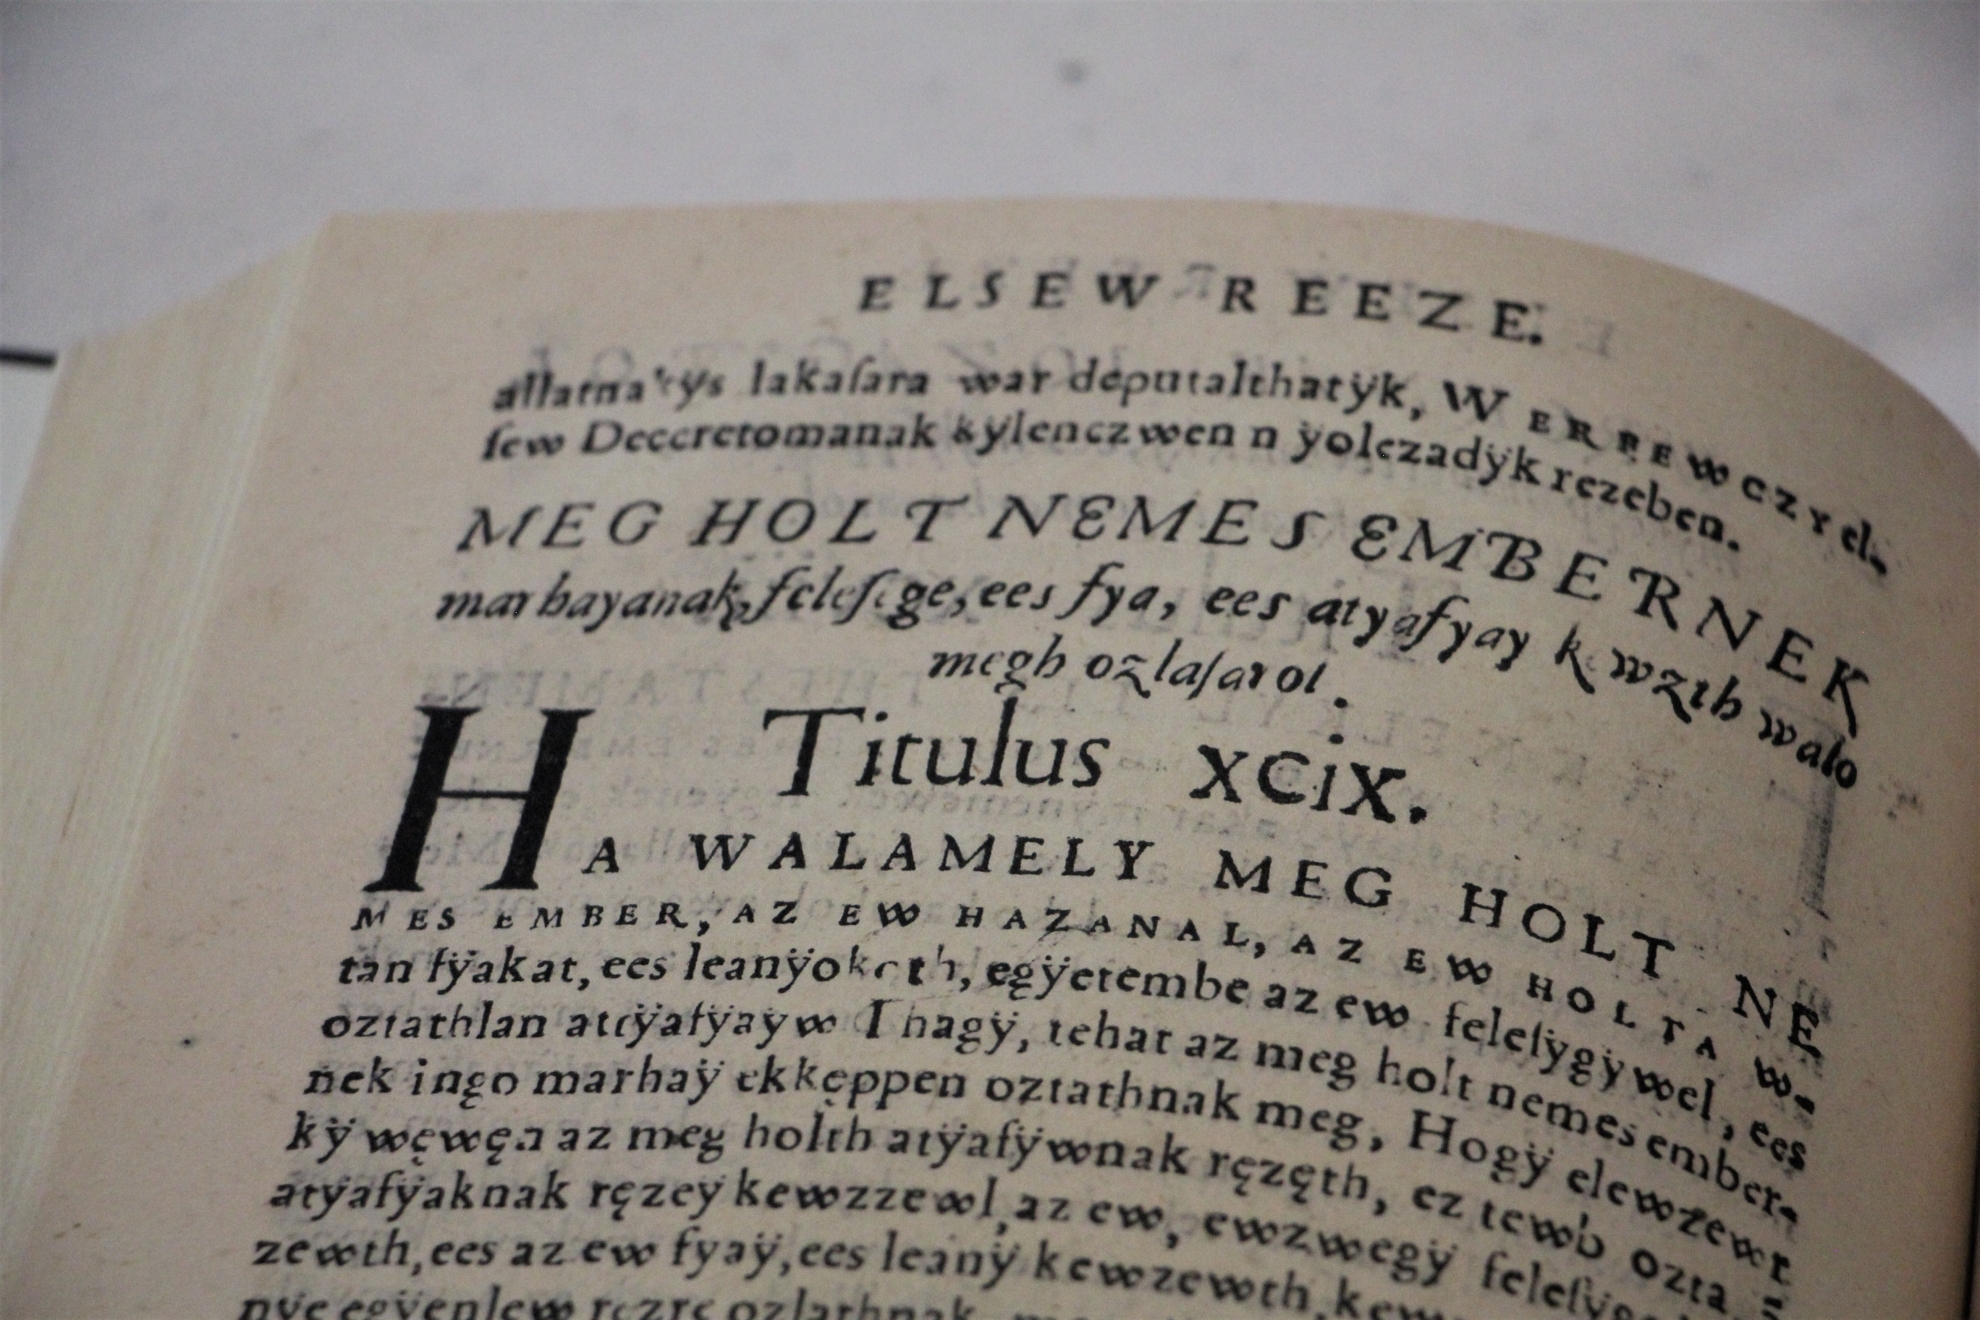 ELSEW REEZE.
lakaſara war deputalthatÿk, WERBEWCZY el-
ſew Deccretomanak kÿlenczwen n ÿolczadÿk rezeben.
MEG HOLT NEMES EMBERNEK
marhayanak, feleſ ge, ees fya, ees atyafyay k wzth walo
megh ozlaſarol.
Titulus XCiX.
HA WALAMELY MEG HOLT NE
MES EMBER, AZ EW HAZANAL, AZ EW HOLTA W-
tan fÿakat, ees leanÿoketh, egÿetembe az ew feleſÿgÿwel, ees
oztathlan atÿafÿaÿw I hagÿ, tehat az meg holt nemes ember-
nek ingo marhaÿ ekkęppen oztathnak meg, Hogÿ elewzewr
kÿ węwęn az meg holth atÿafÿwnak ręzęth, ez tewb ozta =
atÿafÿaknak ręzeÿ kewzzewl, az ew, ewzwegÿ
zewth, ees az ew fyaÿ, ees leanÿ kewzewth,
nÿe egÿenlew rezre ozlathnak